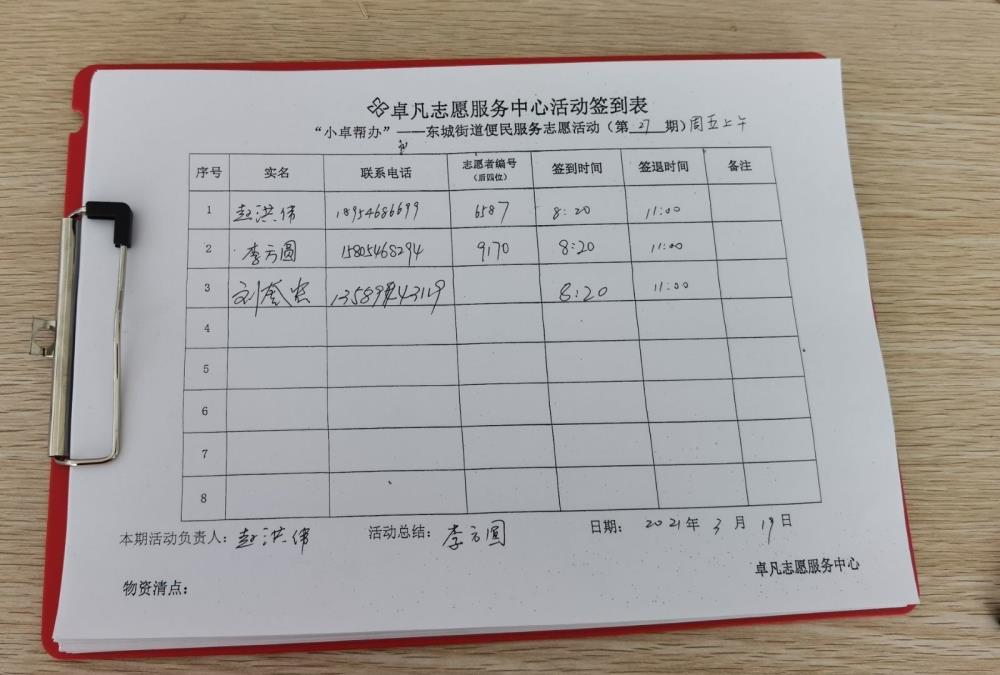 卓凡志愿服务中心活动签到表
“小卓帮办”——东城街道便民服务志愿活动（第 27 期）周五上午
序号 实名 联系电话 志愿者编号（后四位） 签到时间 签退时间 备注
1 赵洪伟 18954686699 6587 8:20 11:00
2 李方圆 15805468294 9170 8:20 11:00
3 8:20 11:00
4
5
6
7
8
本期活动负责人：赵洪伟 活动总结：李方圆 日期：2021年3月19日
卓凡志愿服务中心
物资清点：